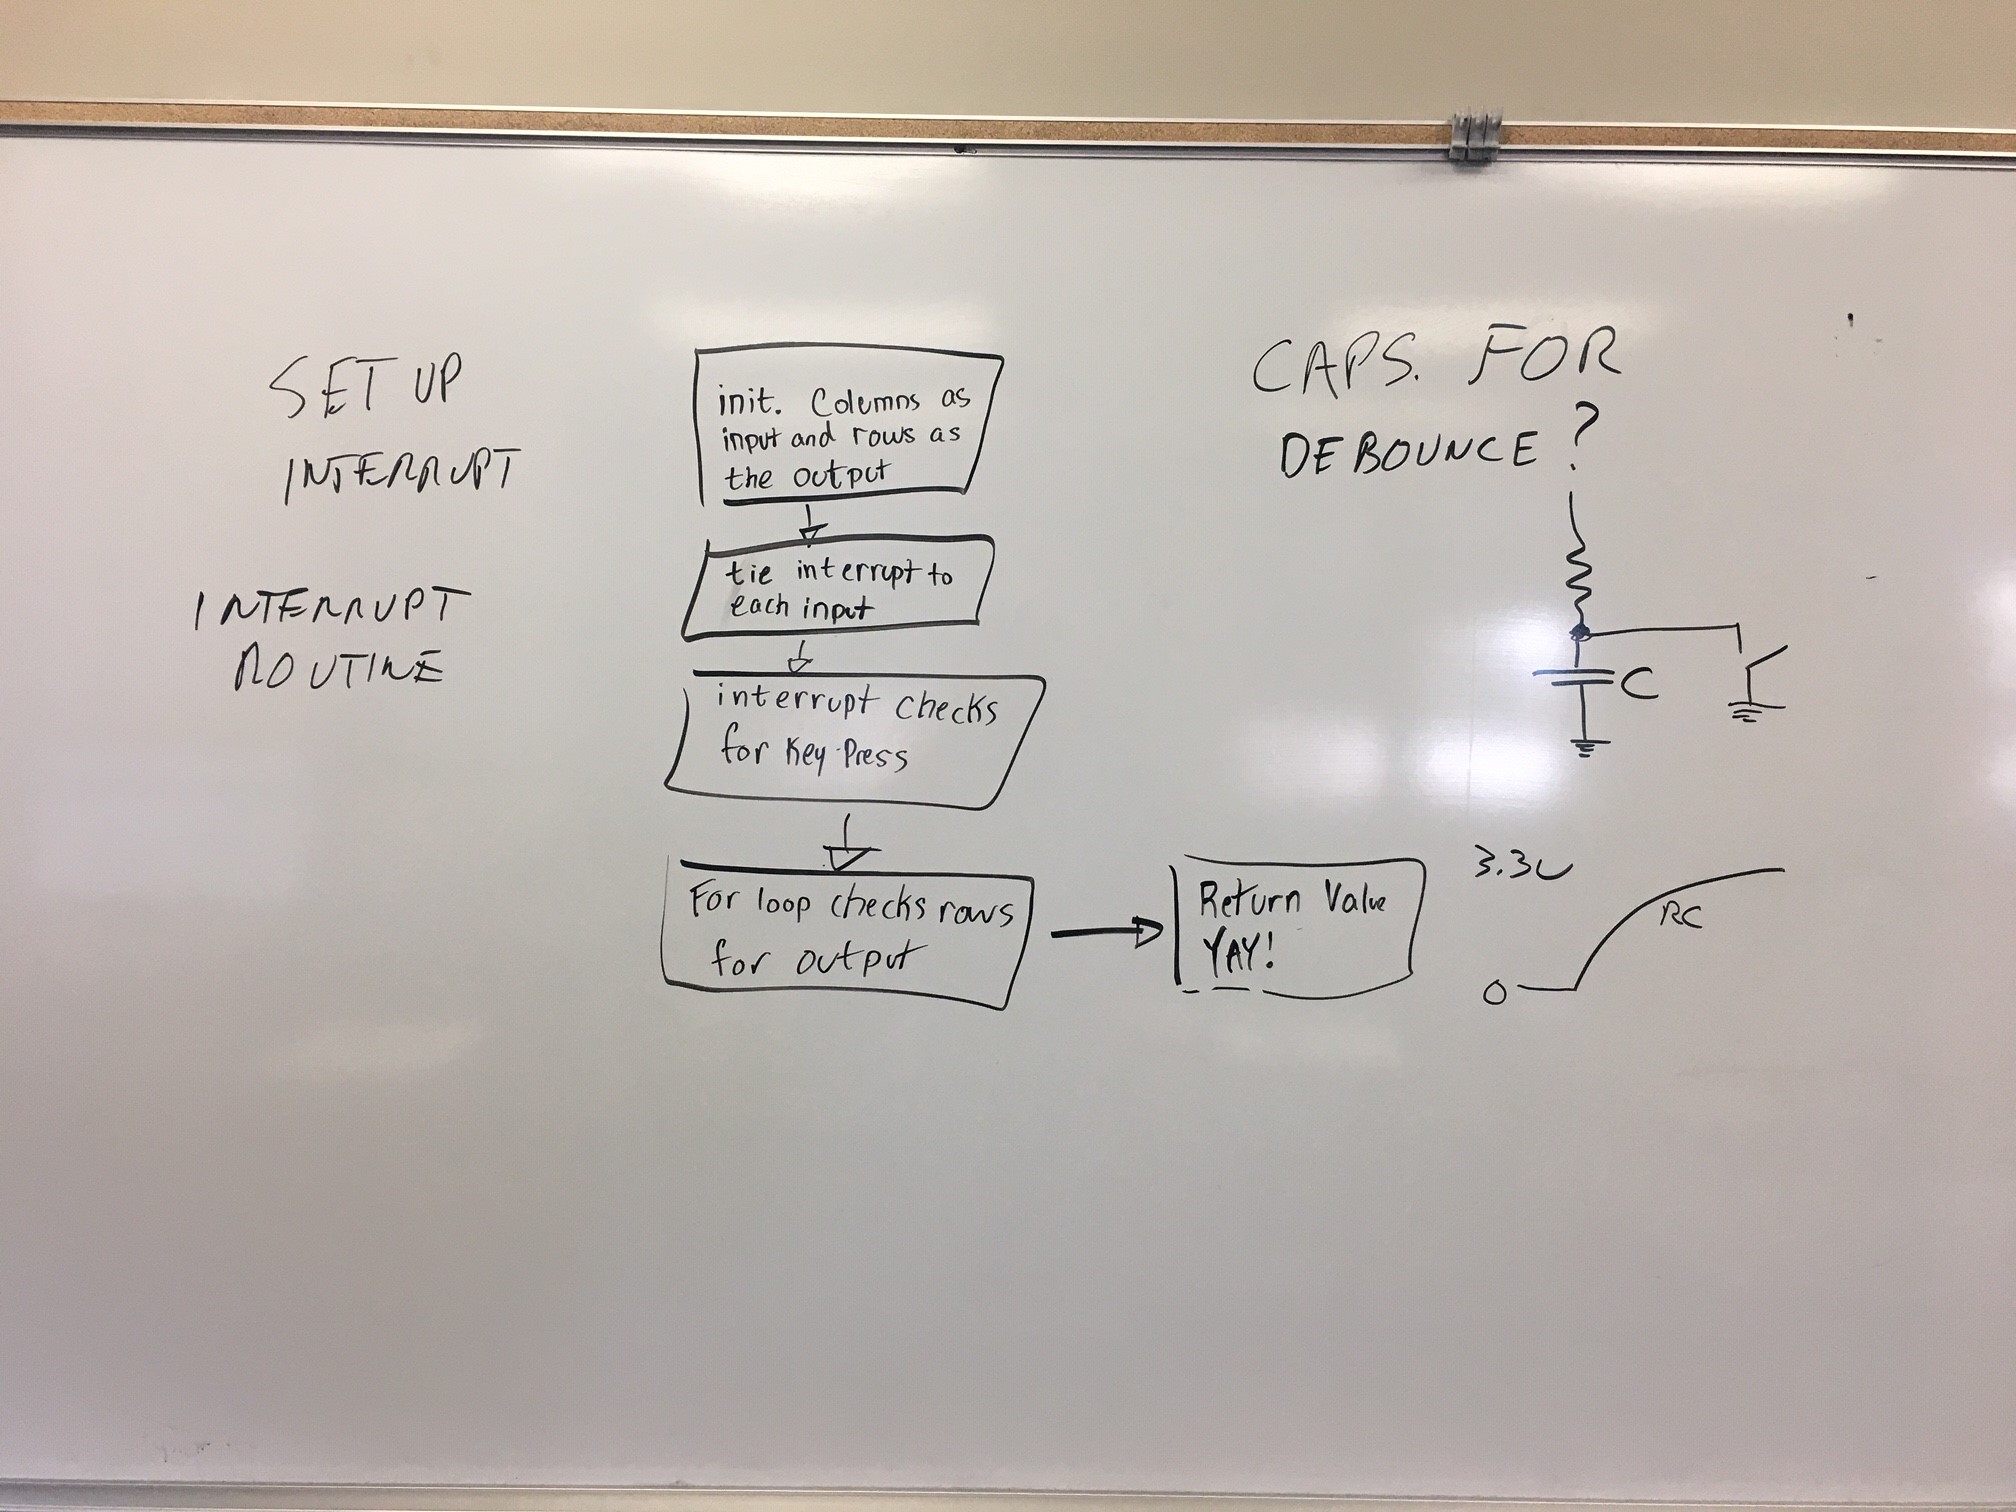 SET UP
INTERRUPT
INTERRUPT
ROUTINE
init. Columns as
input and rows as
the output
tie interrupt to
each input
interrupt checks
for Key Press
For loop checks rows
for output
Return Value
YAY!
CAPS. FOR
DEBOUNCE?
C
3.3V
RC
0